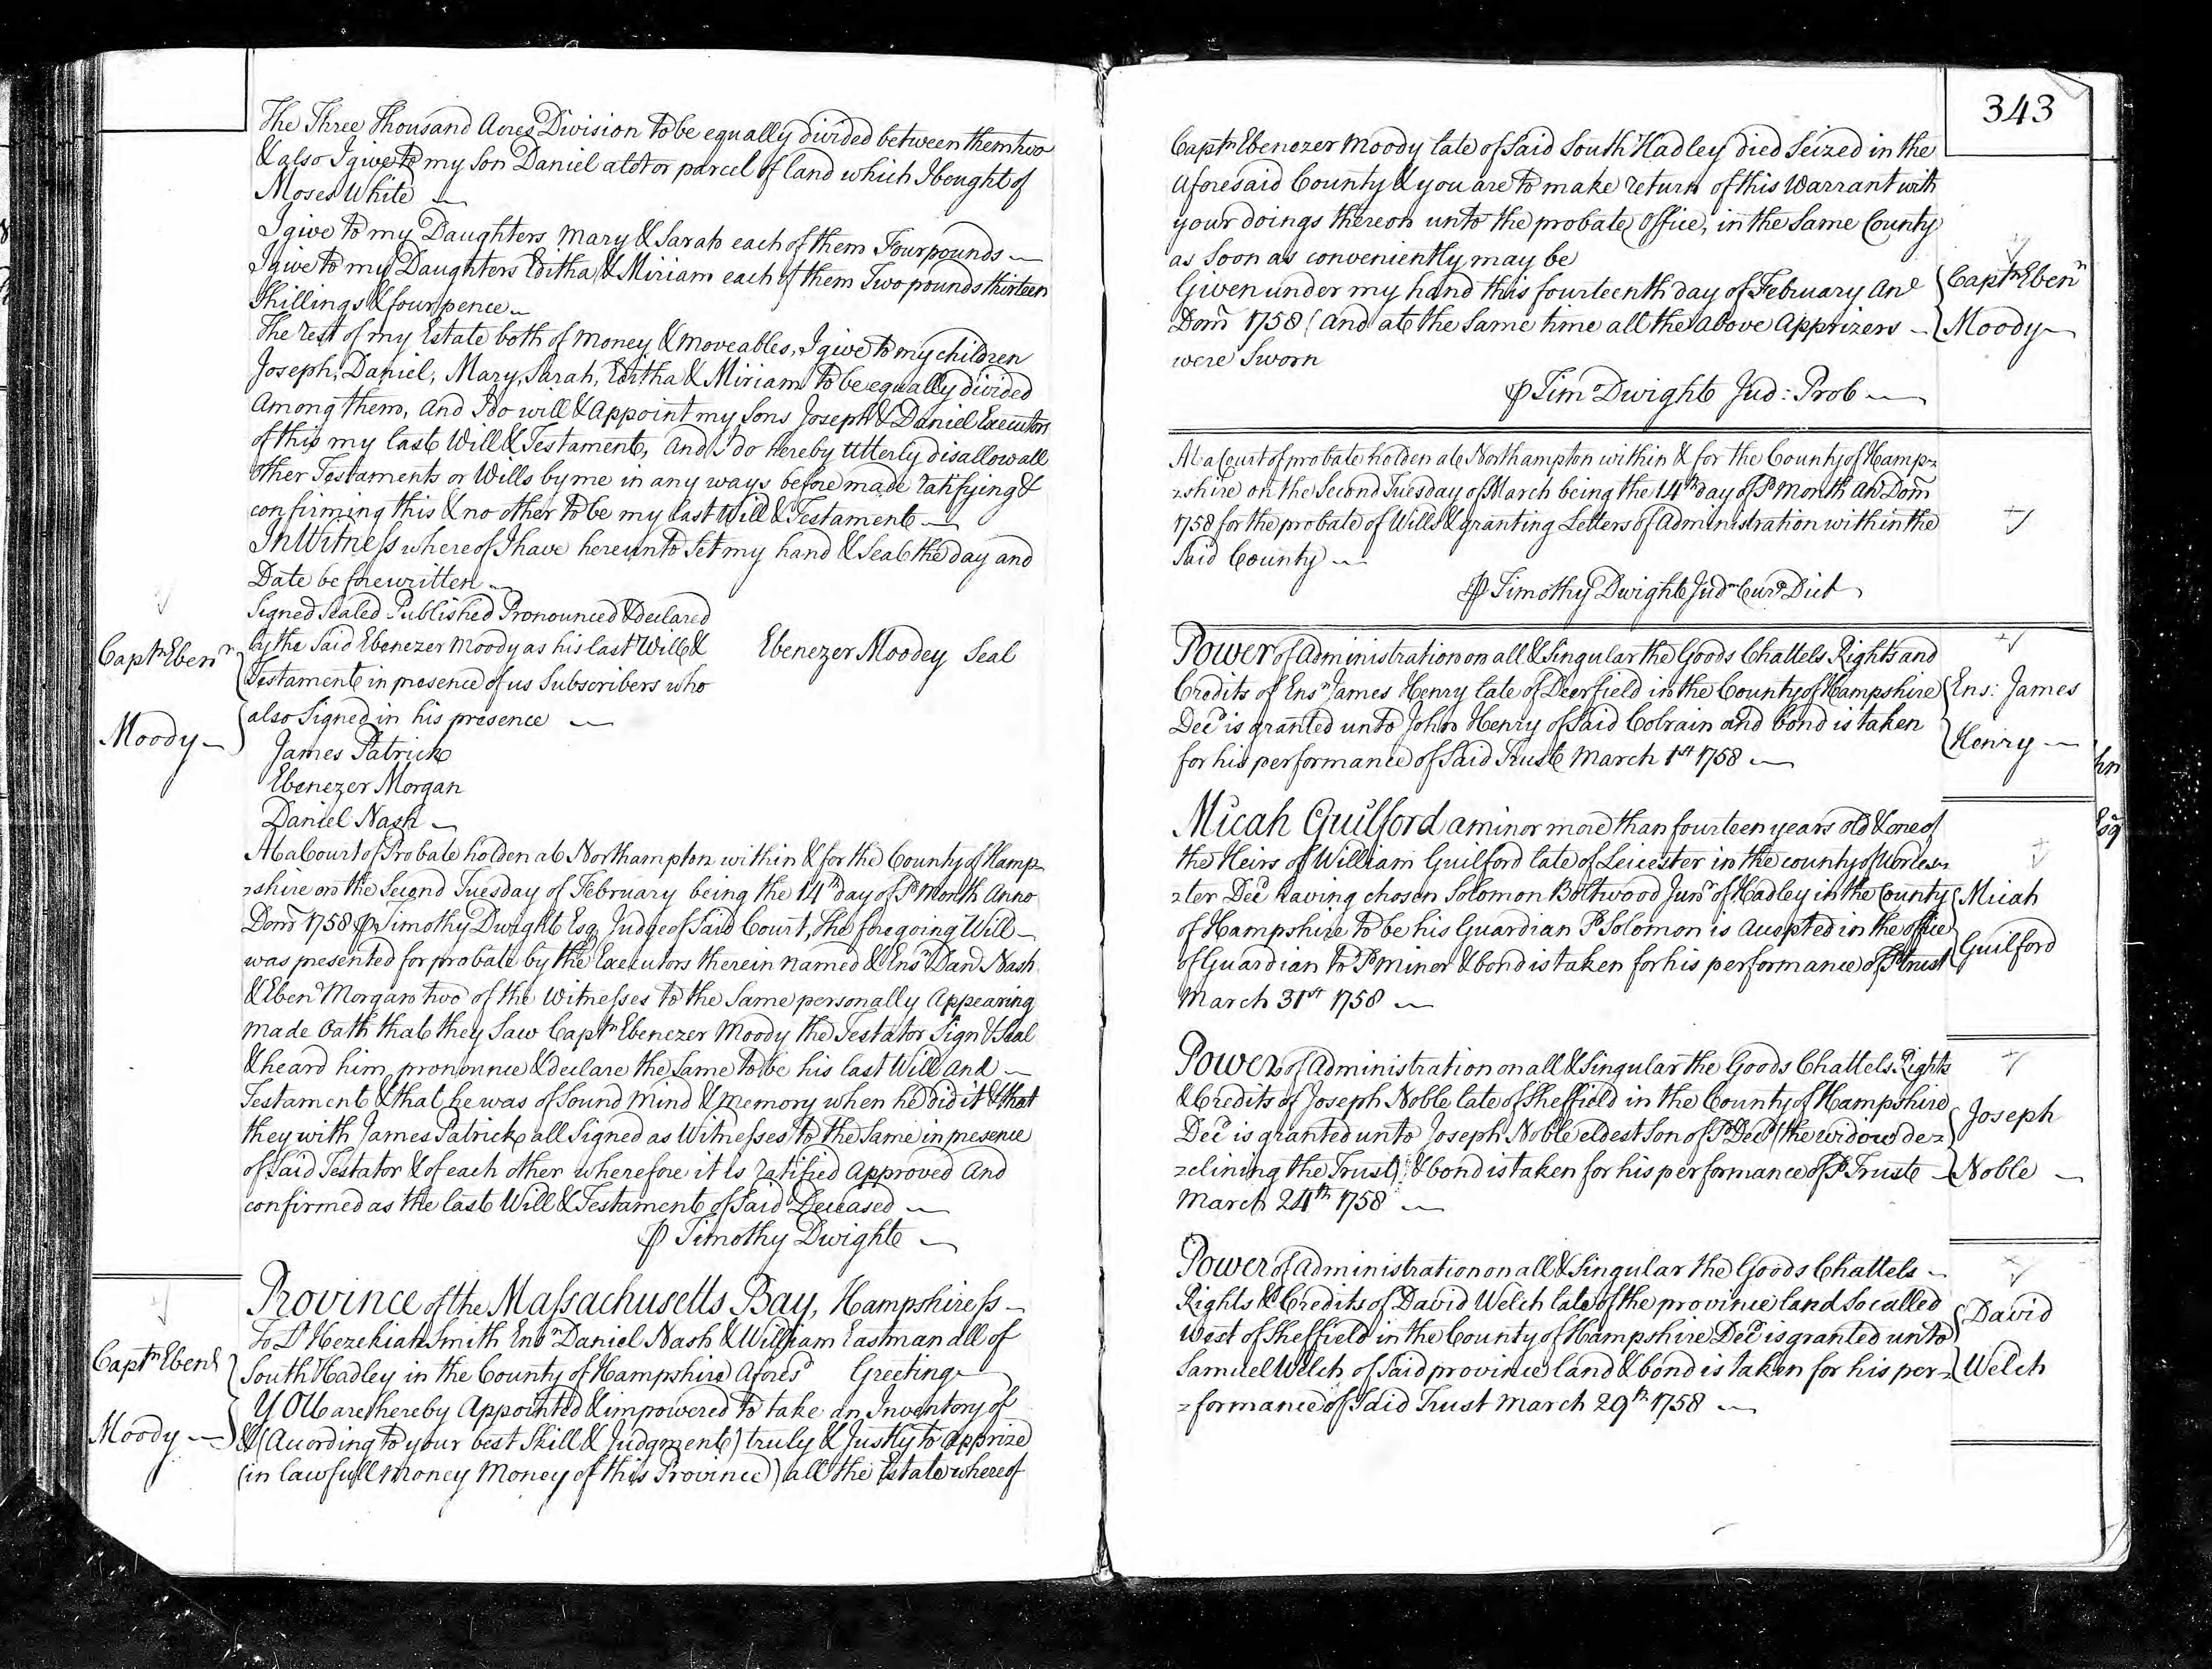 The Three Thousand Acres Division to be equally divided between them two
& also I give to my Son Daniel a lot or parcel of land which I bought of
Moses White
I give to my Daughters Mary & Sarah each of them Four pounds
I give to my Daughters Editha & Miriam each of them Two pounds thirteen
Shillings & four pence
The rest of my Estate both of money & moveables, I give to my children
Joseph, Daniel, Mary, Sarah, Editha & Miriam to be equally divided
Among them, and I do will & Appoint my Sons Joseph & Daniel Executors
of this my last Will & Testament, and I do hereby Utterly disallow all
other Testaments or Wills by me in any ways before made ratifying &
confirming this & no other to be my last Will & Testament
In Witness whereof I have hereunto Set my hand & Seal the day and
Date before written
Signed Sealed Published Pronounced & declared
by the Said Ebenezer Moody as his last Will &
Testament in presence of us Subscribers who
also Signed in his presence
Ebenezer Moodey Seal
Captn Ebenr
Moody
James Patrick
Ebenezer Morgan
Daniel Nash
At a Court of Probate holden at Northampton within & for the County of Hamp=
=shire on the Second Tuesday of February being the 14th day of sd Month Anno
Dom 1758 p Timothy Dwight Esq Judge of Said Court, the foregoing Will
was presented for probate by the Executors therein named & Ensn Danl Nash
& Ebenr Morgan two of the Witnesses to the Same personally Appearing
made Oath that they Saw Captn Ebenezer Moody the Testator Sign & Seal
& heard him pronounce & declare the Same to be his last Will and
Testament & that he was of Sound mind & memory when he did it & that
they with James Patrick all Signed as Witnesses to the Same in presence
of Said Testator & of each other wherefore it is ratified Approved And
confirmed as the last Will & Testament of Said Deceased
p Timothy Dwight
Province of the Massachusetts Bay, Hampshire ss
To Lt Hezekiah Smith Ensn Daniel Nash & William Eastman all of
South Hadley in the County of Hampshire Aforesd Greeting
YOU are hereby Appointed & impowered to take an Inventory of
& (According to your best Skill & Judgment) truly & Justly to apprize
(in lawfull money Money of this Province) all the Estate whereof
Captn Ebenr
Moody
343
Captn Ebenezer Moody late of Said South Hadley died Seized in the
Aforesaid County & you are to make return of this Warrant with
your doings thereon unto the probate Office, in the Same County
as Soon as conveniently may be
Given under my hand this fourteenth day of February Ano
Dom 1758 (and at the Same time all the above Apprizers
were Sworn
Captn Ebenr
Moody
p Tim Dwight Jud: Prob
At a Court of probate holden at Northampton within & for the County of Hamp=
=shire on the Second Tuesday of March being the 14th day of sd Month Ano Dom
1758 for the probate of Wills & granting Letters of Administration within the
Said County
p Timothy Dwight Jud
Power of Administration on all & Singular the Goods Chattels Rights and
Credits of Ensn James Henry late of Deerfield in the County of Hampshire
Decd is granted unto John Henry of Said Colrain and bond is taken
for his performance of Said Trust March 1st 1758
Ens: James
Henry
Micah Guilford a minor more than fourteen years old & one of
the Heirs of William Guilford late of Leicester in the county of Worces=
=ter Decd having chosen Solomon Boltwood Junr of Hadley in the County
of Hampshire to be his Guardian sd Solomon is Accepted in the office
of Guardian to sd Minor & bond is taken for his performance of sd trust
March 31st 1758
Micah
Guilford
Power of Administration on all & Singular the Goods Chattels Rights
& Credits of Joseph Noble late of Sheffield in the County of Hampshire
Decd is granted unto Joseph Noble eldest Son of sd Decd (the widow de=
=clining the Trust) & bond is taken for his performance of sd Trust
March 24th 1758
Joseph
Noble
Power of Administration on all & Singular the Goods Chattels
Rights & Credits of David Welch late of the province land So called
West of Sheffield in the County of Hampshire Decd is granted unto
Samuel Welch of Said province land & bond is taken for his per=
=formance of Said Trust March 29th 1758
David
Welch